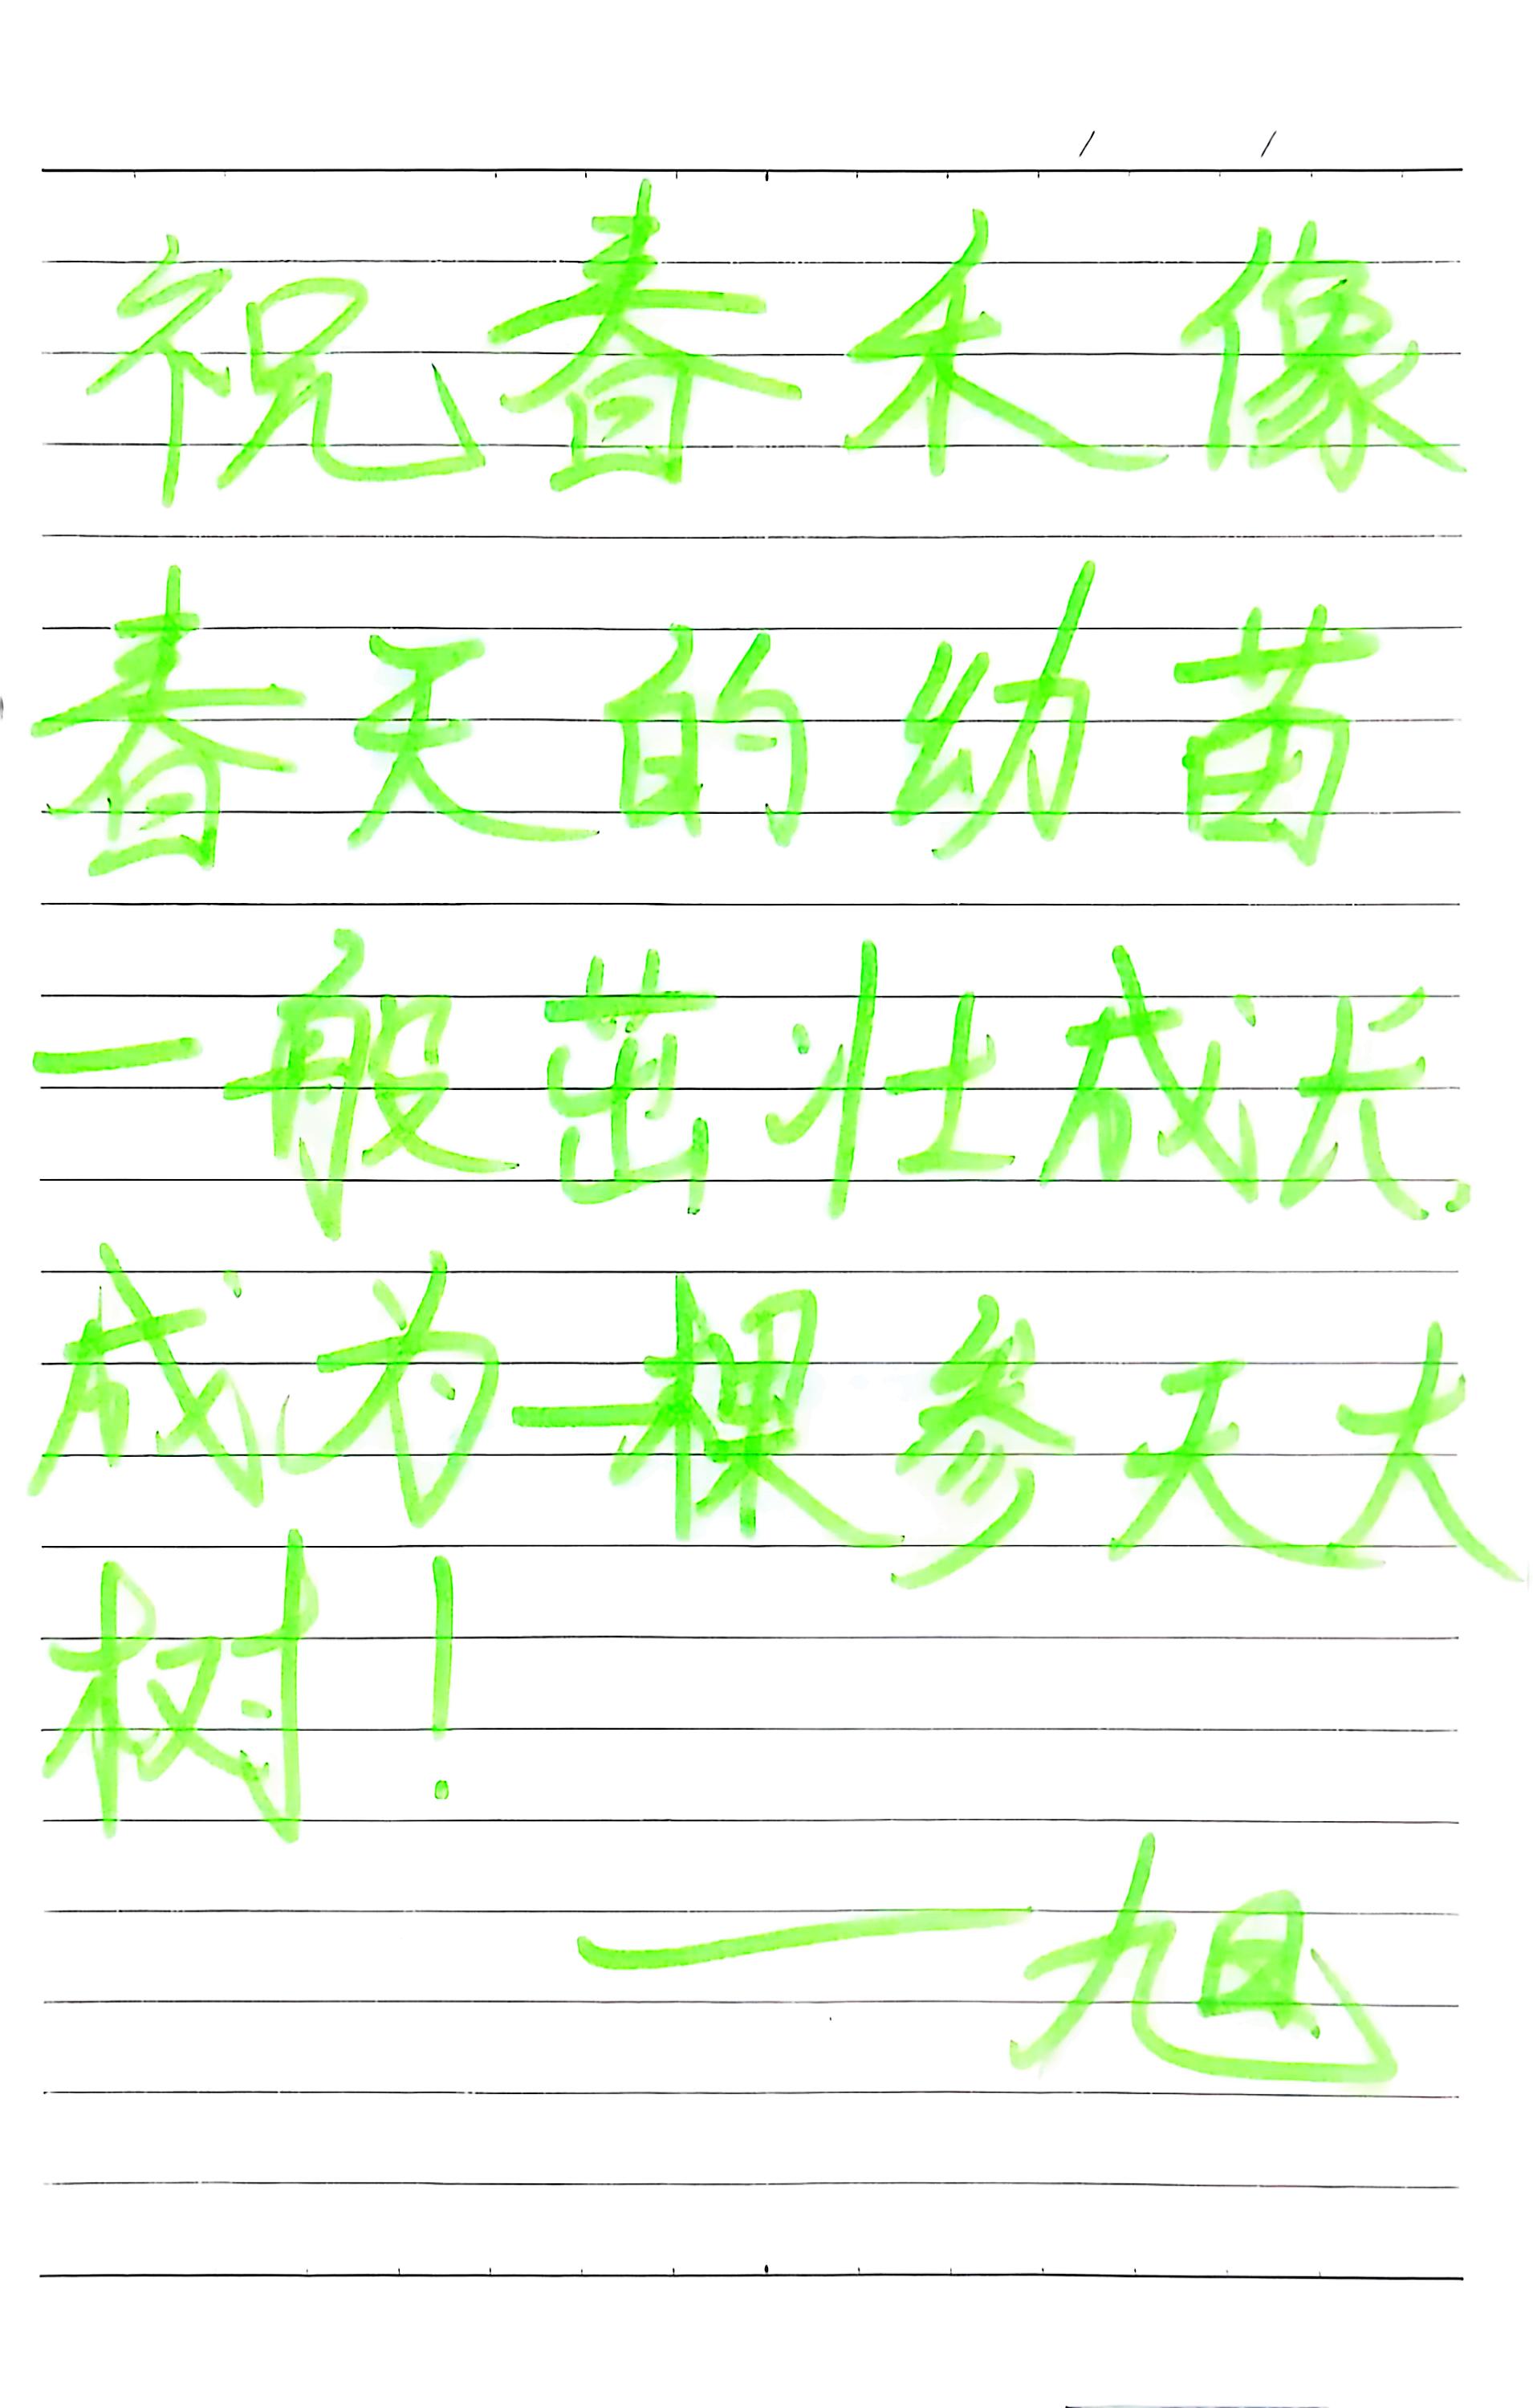 祝春木像
春天的幼苗
一般茁壮成长.
成为一棵参天大
树！
—旭